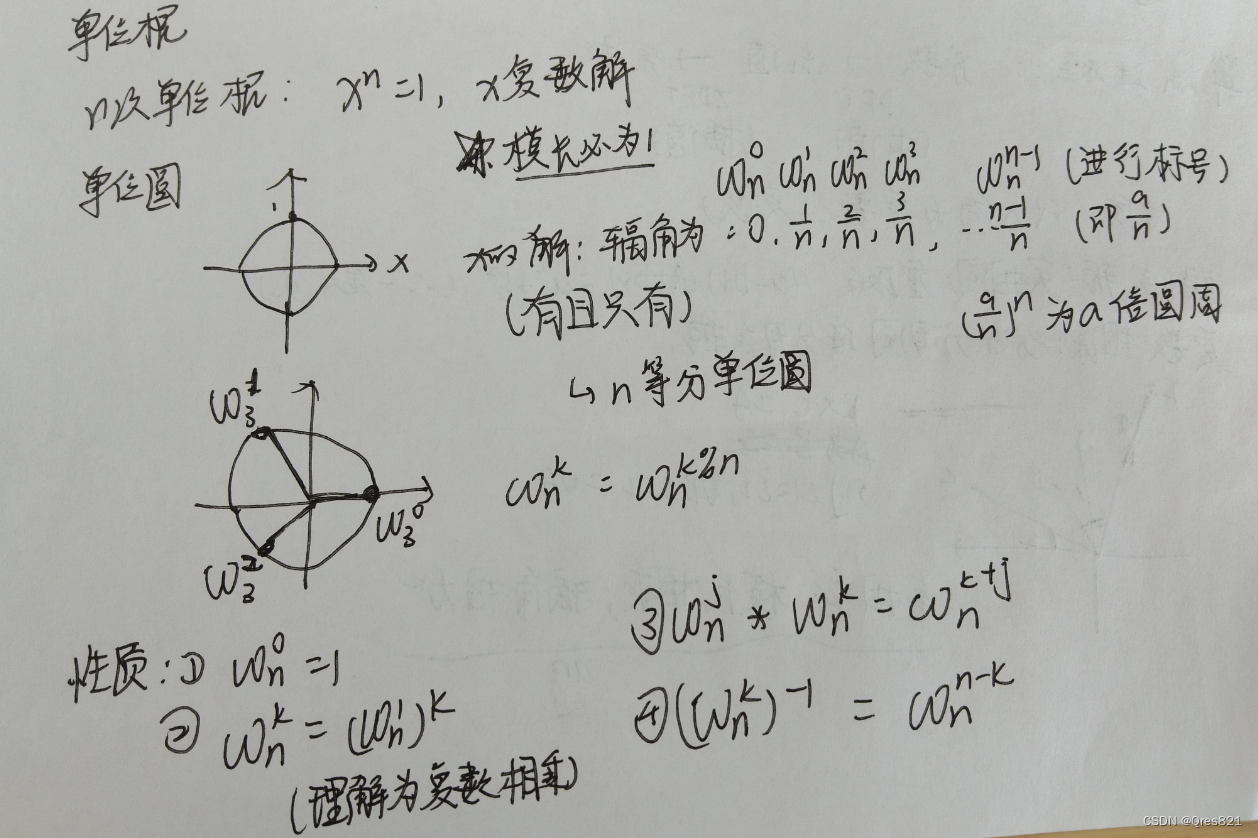 单位根
n次单位根: xⁿ=1, x复数解
模长必为1
单位圆
x
ωₙ⁰ ωₙ¹ ωₙ² ωₙ³ ωₙⁿ⁻¹ (进行标号)
x的解: 辐角为: 0, 1/n, 2/n, 3/n, ... n-1/n (即 a/n)
(有且只有)
(a/n)ⁿ 为a倍圆周
↳ n等分单位圆
ω₃¹
ω₃⁰
ω₃²
ωₙᵏ = ωₙ^{k%n}
性质: ① ωₙ⁰ =1
② ωₙᵏ = (ωₙ¹)ᵏ
(理解为复数相乘)
③ ωₙʲ * ωₙᵏ = ωₙᵏ⁺ʲ
④ (ωₙᵏ)⁻¹ = ωₙⁿ⁻ᵏ
CSDN @Qres821